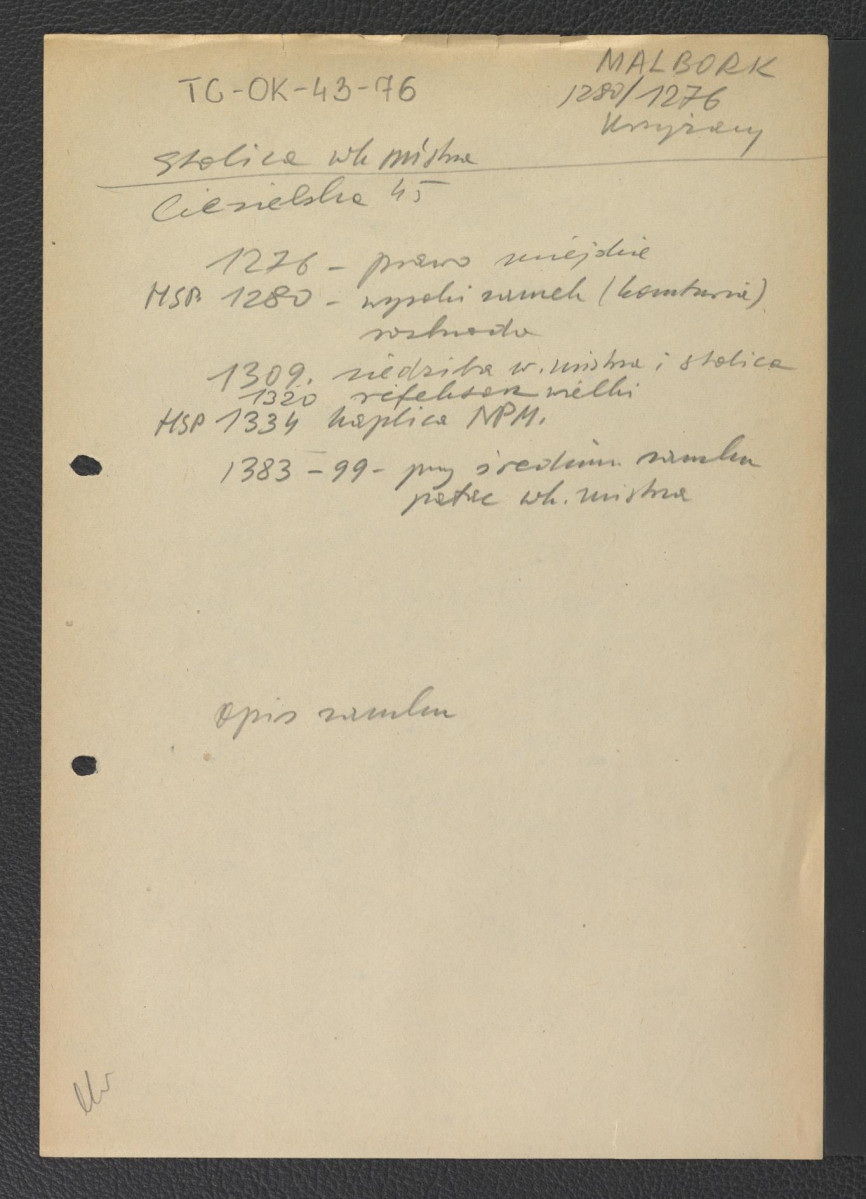 TC-OK-43-76
MALBORK
1280/1276
Krzyżacy
Stolica wk mistrza
Ciesielska 45
1276 - prawo miejskie
MSP 1280 - wysoki zamek (komturia)
rozbudo
1309. siedziba w. mistrza i stolica
1320 refektarz wielki
MSP 1334 kaplica NPM.
1383-99- przy średnim zamku
pałac wk. mistrza
Opis zamku